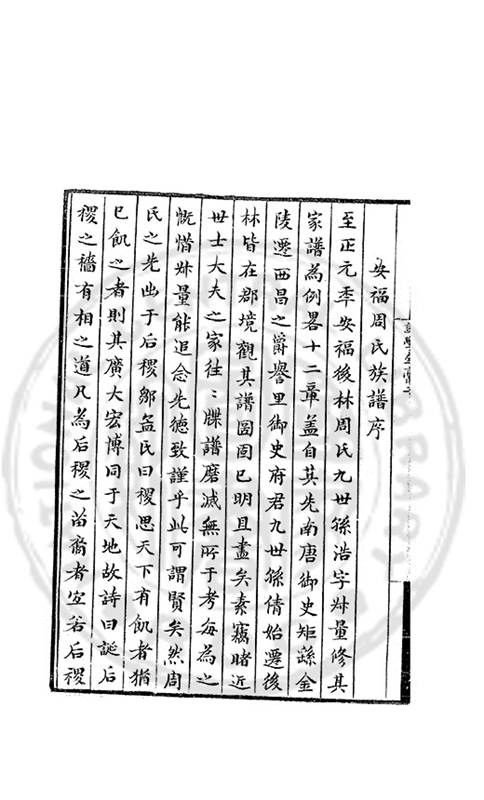 安福周氏族譜序
至正元季安福後林周氏九世孫浩字叔量修其
家譜為例畧十二章蓋自其先南唐御史矩繇金
陵遷西昌之爵譽里御史府君九世孫倩始遷後
林皆在郡境觀其譜圖固已明且盡矣素竊睹近
世士大夫之家往〻牒譜磨滅無所于考每為之
慨惜叔量能追念先德致謹乎此可謂賢矣然周
氏之先出于后稷鄒孟氏曰稷思天下有飢者猶
已飢之者則其廣大宏博同于天地故詩曰誕后
稷之穡有相之道凡為后稷之苗裔者宜若后稷